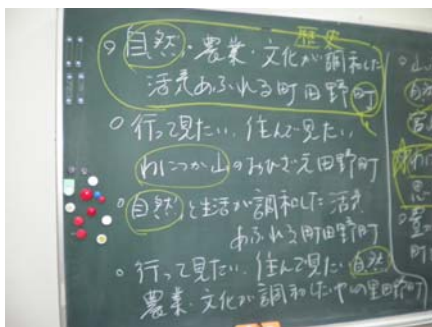 歴史
○自然・農業・文化が調和した
活気あふれる町田野町
○行って見たい、住んで見たい
わにつか山のおひざ元田野町
○自然と生活が調和した活気
あふれる町田野町
○行って見たい、住んで見たい自然
農業・文化が調和した中の里田野町